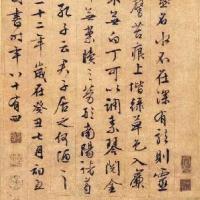 名水不在深有龍則靈
馨苔痕上階綠草色入簾
無白丁可以調素琴閱金
無案牘之勞形南陽諸葛
孔子云君子居之何陋之
十二年歲在癸丑七月初五
書時年八十有四